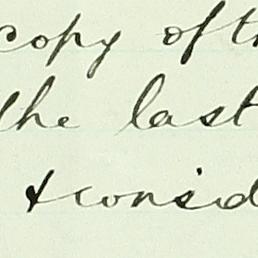 copy of th
the last
& consid